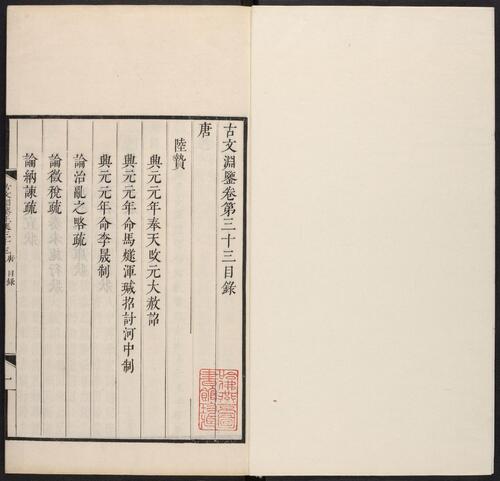 古文淵鑒卷第三十三目錄
唐
陸贄
興元元年奉天改元大赦詔
興元元年命馬燧渾瑊招討河中制
興元元年命李晟制
論治亂之略疏
論徵稅疏
論納諫疏
古文淵鑒卷三十三 唐 目錄
一
哈佛燕京圖書館珍藏